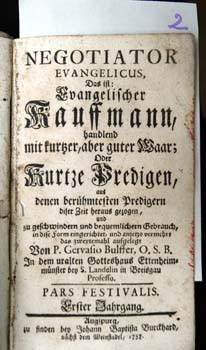 2
NEGOTIATOR
EVANGELICUS,
Das ist:
Evangelischer
Kauffmann,
handlend
mit kurtzer, aber guter Waar;
Oder
Kurtze Predigen,
aus
denen berühmtesten Predigern
diser Zeit heraus gezogen,
und
zu geschwindern und bequemlichern Gebrauch,
in dise Form eingerichtet, und anjetzo vermehrt
das zweytemahl aufgelegt
Von P. Gervasio Bulffer, O. S. B.
In dem uralten Gotteshaus Ettenheim-
münster bey S. Landelin in Breisgau
Professo.
PARS FESTIVALIS.
Erster Jahrgang.
Augspurg,
zu finden bey Johann Baptista Burckhard,
nächst dem Weinstadel,